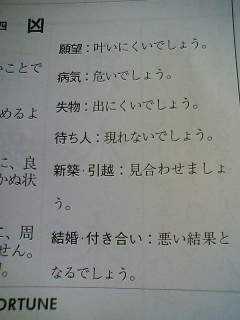 四 凶
願望:叶いにくいでしょう。
病気:危いでしょう。
失物:出にくいでしょう。
待ち人:現れないでしょう。
新築·引越:見合わせましょ
う。
結婚·付き合い:悪い結果と
なるでしょう。
いことで
めるよ
に、良
かぬ状
に、周
せん。
。
ORTUNE